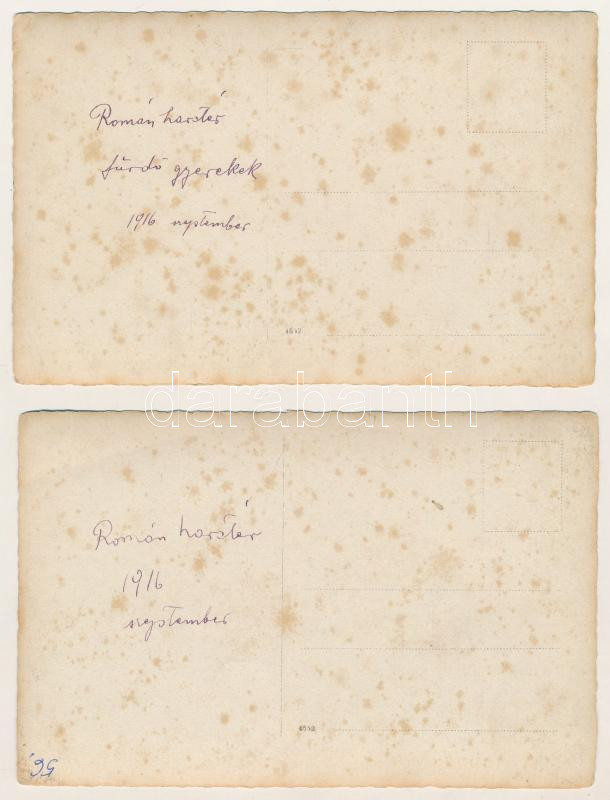 Román harctér
fürdő gyerekek
1916 szeptember
4542
darabanth
Román harctér
1916
szeptember
4542
56.